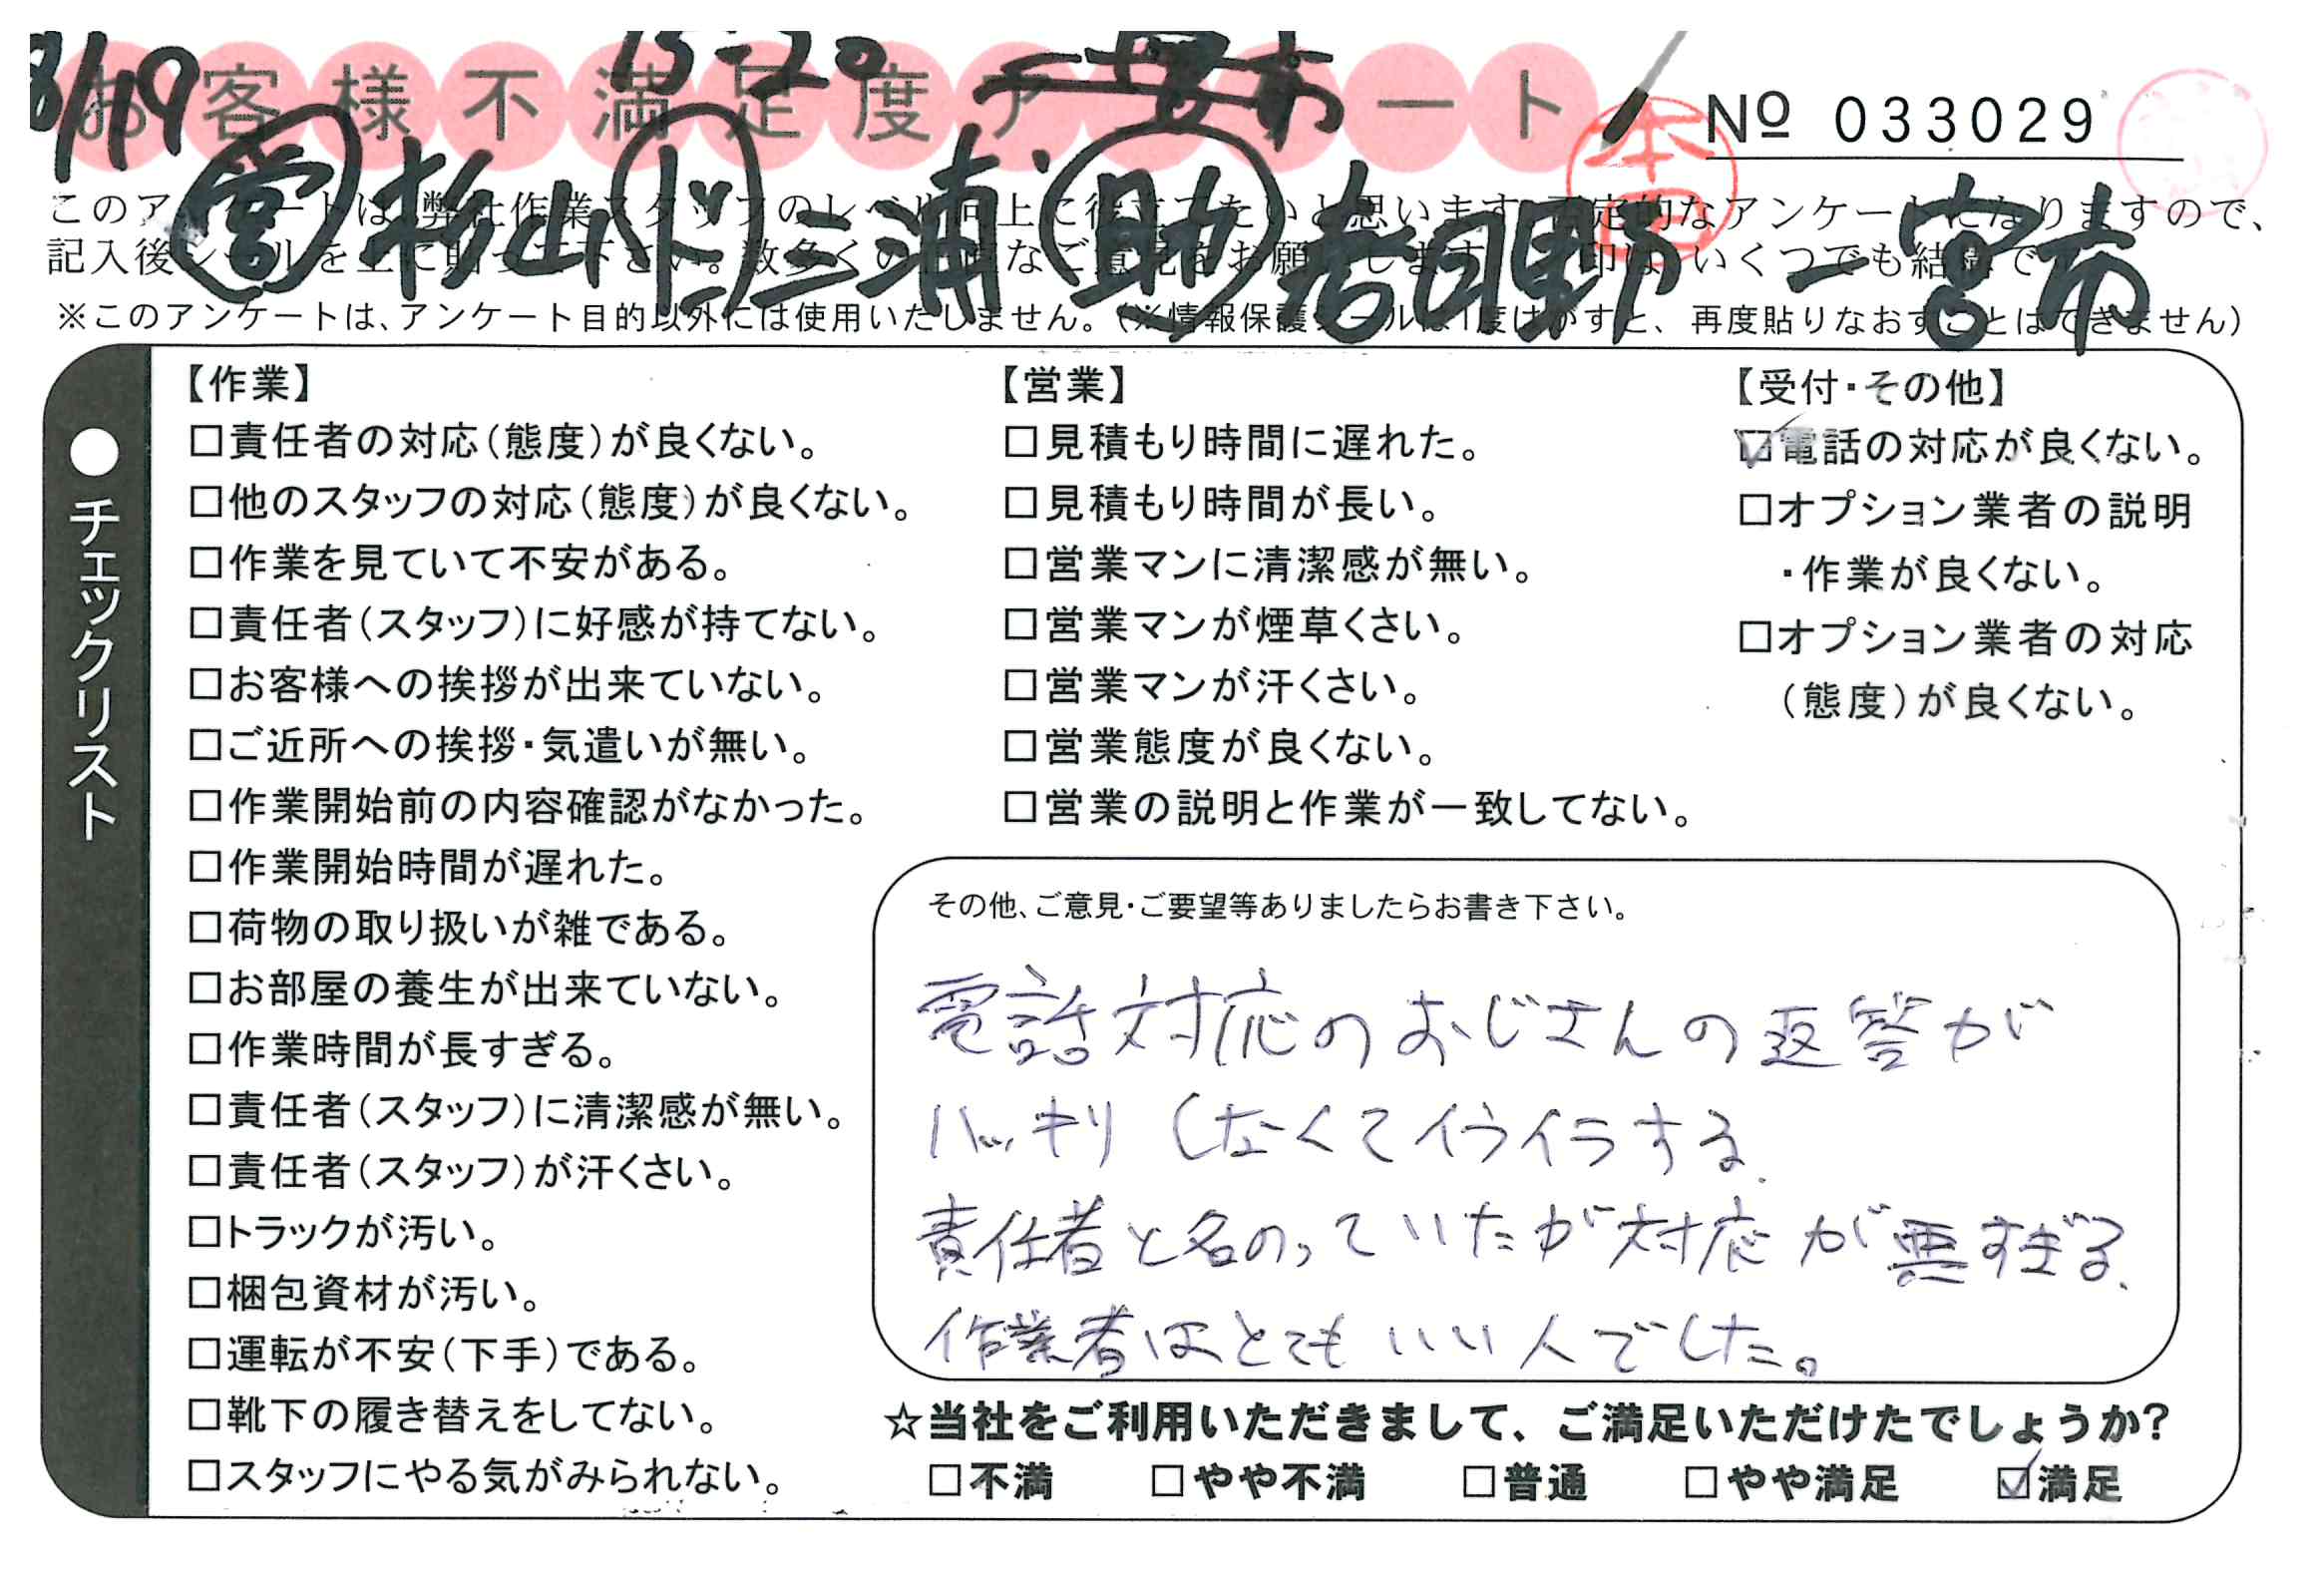 8/19 13-20
お客様不満足度アンケート
本田
№ 033029
営 杉山 ド 三浦 助 春日野 一宮市
このアンケートは、弊社作業スタッフのレベル向上に役立てたいと思います。否定的なアンケートになりますので、
記入後シールを上に貼って下さい。数多くの正直なご意見をお願いします。 印は、いくつでも結構です
※このアンケートは、アンケート目的以外には使用いたしません。(※情報保護シールは1度はがすと、再度貼りなおすことはできません)
●チェックリスト
【作業】
□責任者の対応(態度)が良くない。
□他のスタッフの対応(態度)が良くない。
□作業を見ていて不安がある。
□責任者(スタッフ)に好感が持てない。
□お客様への挨拶が出来ていない。
□ご近所への挨拶・気遣いが無い。
□作業開始前の内容確認がなかった。
□作業開始時間が遅れた。
□荷物の取り扱いが雑である。
□お部屋の養生が出来ていない。
□作業時間が長すぎる。
□責任者(スタッフ)に清潔感が無い。
□責任者(スタッフ)が汗くさい。
□トラックが汚い。
□梱包資材が汚い。
□運転が不安(下手)である。
□靴下の履き替えをしてない。
□スタッフにやる気がみられない。
【営業】
□見積もり時間に遅れた。
□見積もり時間が長い。
□営業マンに清潔感が無い。
□営業マンが煙草くさい。
□営業マンが汗くさい。
□営業態度が良くない。
□営業の説明と作業が一致してない。
【受付・その他】
☑電話の対応が良くない。
□オプション業者の説明
・作業が良くない。
□オプション業者の対応
(態度)が良くない。
その他、ご意見・ご要望等ありましたらお書き下さい。
電話対応のおじさんの返答が
ハッキリしなくてイライラする.
責任者と名のっていたが対応が悪すぎる.
作業者はとてもいい人でした。
☆当社をご利用いただきまして、ご満足いただけたでしょうか?
□不満 □やや不満 □普通 □やや満足 ☑満足